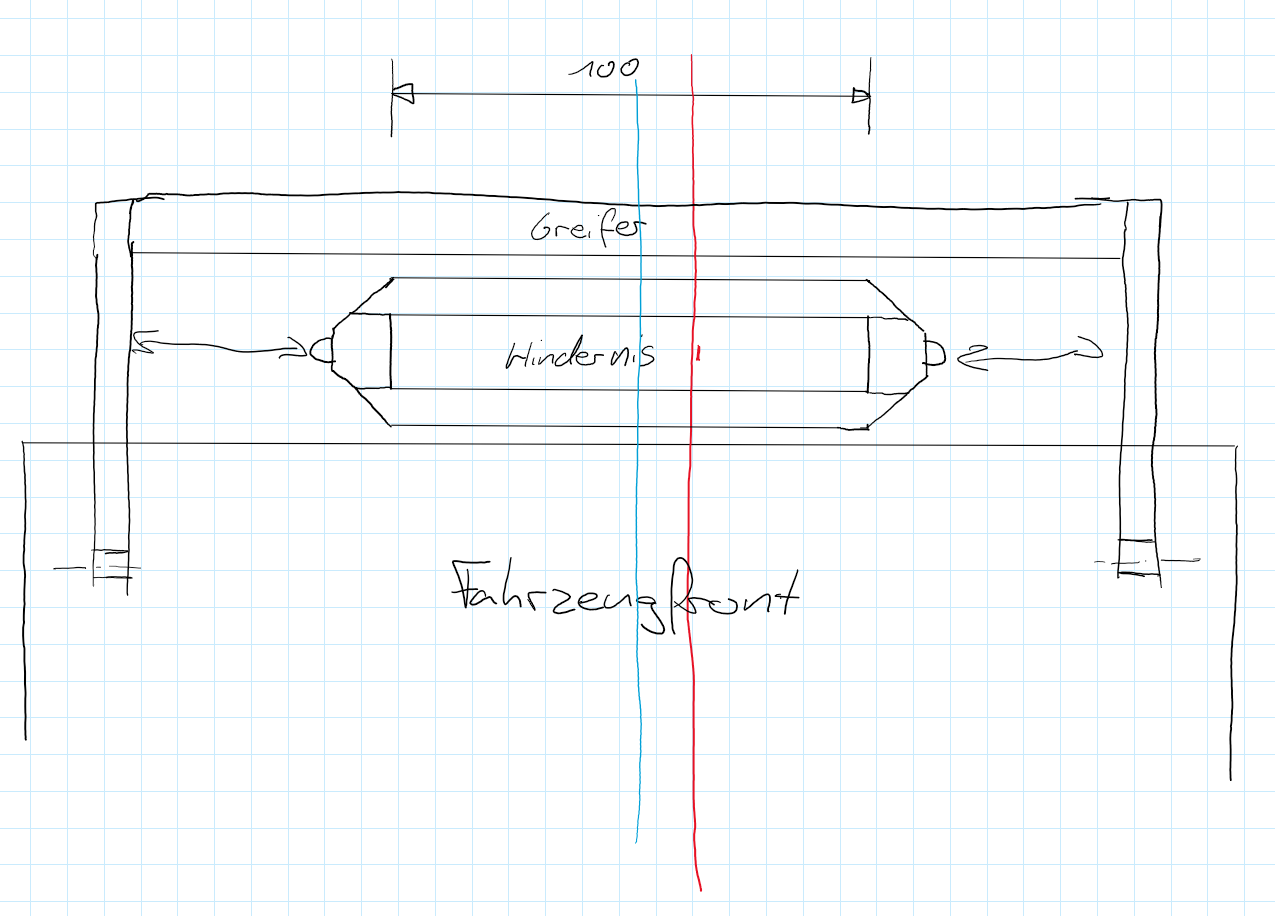 100
Greifer
Hindernis
Fahrzeugfront